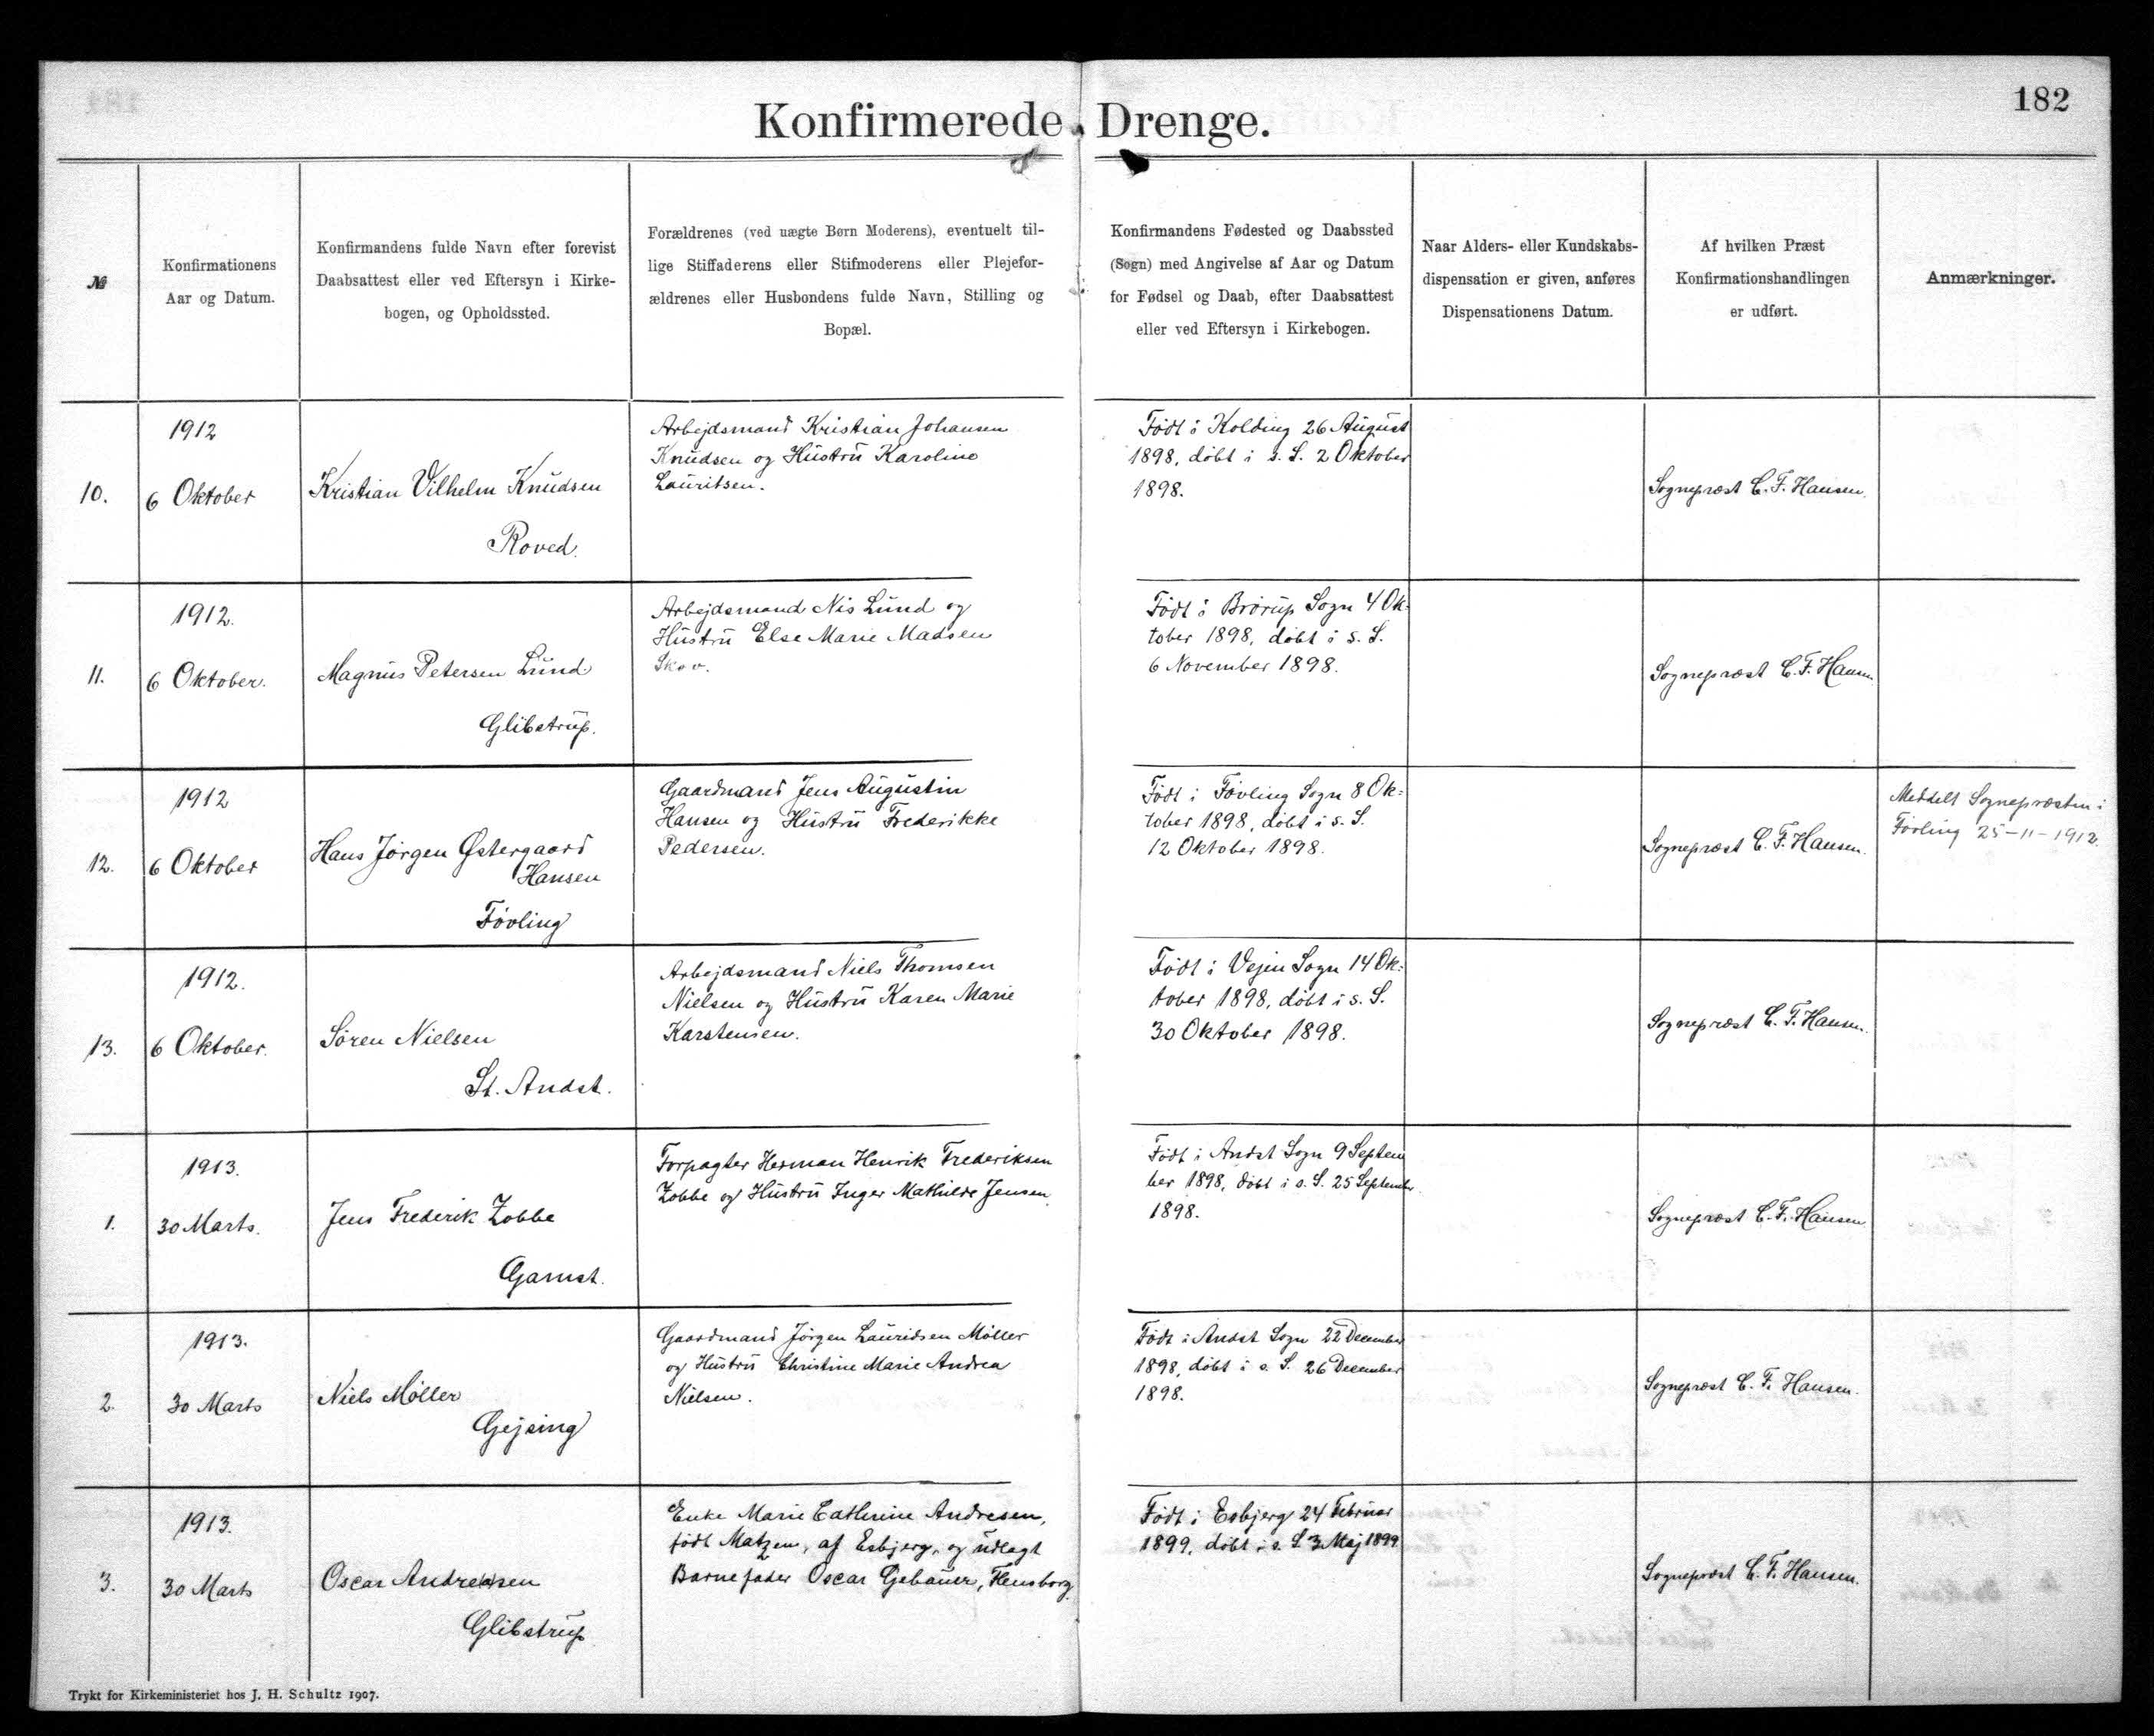 182
Konfirmerede Drenge.
№
Konfirmationens
Aar og Datum.
Konfirmandens fulde Navn efter forevist
Daabsattest eller ved Eftersyn i Kirke-
bogen, og Opholdssted.
Forældrenes (ved uægte Børn Moderens), eventuelt til-
lige Stiffaderens eller Stifmoderens eller Plejefor-
ældrenes eller Husbondens fulde Navn, Stilling og
Bopæl.
Konfirmandens Fødested og Daabssted
(Sogn) med Angivelse af Aar og Datum
for Fødsel og Daab, efter Daabsattest
eller ved Eftersyn i Kirkebogen.
Naar Alders- eller Kundskabs-
dispensation er given, anføres
Dispensationens Datum.
Af hvilken Præst
Konfirmationshandlingen
er udført.
Anmærkninger.
10.
1912
6 Oktober
Kristian Vilhelm Knudsen
Roved.
Arbejdsmand Kristian Johansen
Knudsen og Hustru Karoline
Lauritsen.
Født i Kolding 26 August
1898, døbt i s. S. 2 Oktober
1898.
Sognepræst C. F. Hansen.
11.
1912.
6 Oktober.
Magnus Petersen Lund
Glibstrup.
Arbejdsmand Nis Lund og
Hustru Else Marie Madsen
Skov.
Født i Brørup Sogn 4 Ok-
tober 1898, døbt i s. S.
6 November 1898.
Sognepræst C. F. Hansen
12.
1912
6 Oktober
Hans Jørgen Østergaard
Hansen
Føvling
Gaardmand Jens Augustin
Hansen og Hustru Frederikke
Pedersen.
Født i Føvling Sogn 8 Ok-
tober 1898, døbt i s. S.
12 Oktober 1898.
Sognepræst C. F. Hansen.
Meddelt Sognepræsten i
Føvling 25-11-1912.
13.
1912.
6 Oktober.
Søren Nielsen
St. Andst.
Arbejdsmand Niels Thomsen
Nielsen og Hustru Karen Marie
Karstensen.
Født i Vejen Sogn 14 Ok-
tober 1898, døbt i s. S.
30 Oktober 1898.
Sognepræst C. F. Hansen.
1.
1913.
30 Marts.
Jens Frederik Zobbe
Gamst.
Forpagter Herman Henrik Frederiksen
Zobbe og Hustru Inger Mathilde Jensen
Født i Andst Sogn 9 Septem
ber 1898, døbt i s. S. 25 September
1898.
Sognepræst C. F. Hansen
2.
1913.
30 Marts
Niels Møller
Gejsing
Gaardmand Jørgen Lauridsen Møller
og Hustru Christine Marie Andrea
Nielsen.
Født i Andst Sogn 22 December
1898, døbt i s. S. 26 December
1898.
Sognepræst C. F. Hansen.
3.
1913.
30 Marts
Oscar Andresen
Glibstrup
Enke Marie Cathrine Andresen,
født Matzen, af Esbjerg, og udlagt
Barnefader Oscar Gebauer, Flensborg.
Født i Esbjerg 24 Februar
1899, døbt i s. S. 3 Maj 1899
Sognepræst C. F. Hansen.
Trykt for Kirkeministeriet hos J. H. Schultz 1907.